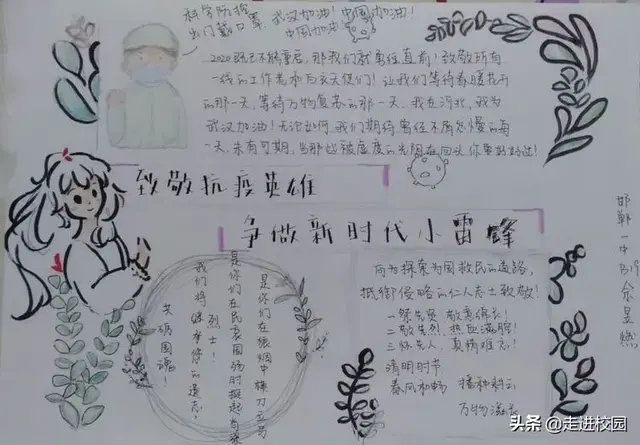 科学防护,武汉加油!中国加油!
出门戴口罩,中国加油
2020既已不能重启,那我们就勇往直前!致敬所有
一线的工作者和白衣天使们!让我们等待春暖花开
的那一天,等待万物复苏的那一天。我在河北,我为
武汉加油!无论如何,我们期待
一天,未有可期,
致敬抗疫英雄
争做新时代小雷锋
向为探索为国救民的道路,
抵御侵略的仁人志士致敬!
一祭先贤 敬意绵长!
二敬先烈,热血满腔!
三怀先人,真情难忘!
清明时节
春风和畅 播种耕耘
万物滋长
是你们在硝烟中横刀立马
是你们在民衰国殇时挺起脊梁
烈士!
我们将继承你的遗志!
安砺国魂!
邯郸一中
头条 @走进校园